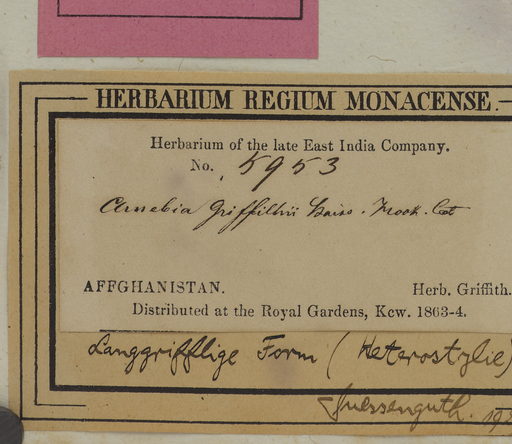 HERBARIUM REGIUM MONACENSE.
Herbarium of the late East India Company.
No. 5953
Arnebia Griffithii Boiss.
AFFGHANISTAN. Herb. Griffith.
Distributed at the Royal Gardens, Kew. 1863-4.
Langgrifflige Form (Heterostylie)
Suessenguth.